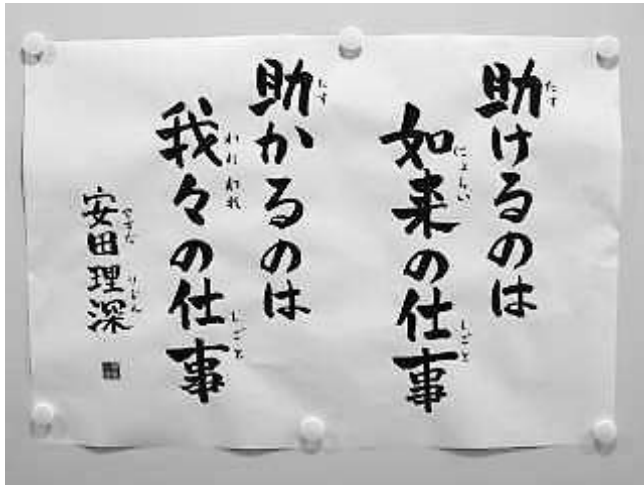 助けるのは
如来の仕事
助かるのは
我々の仕事
安田理深